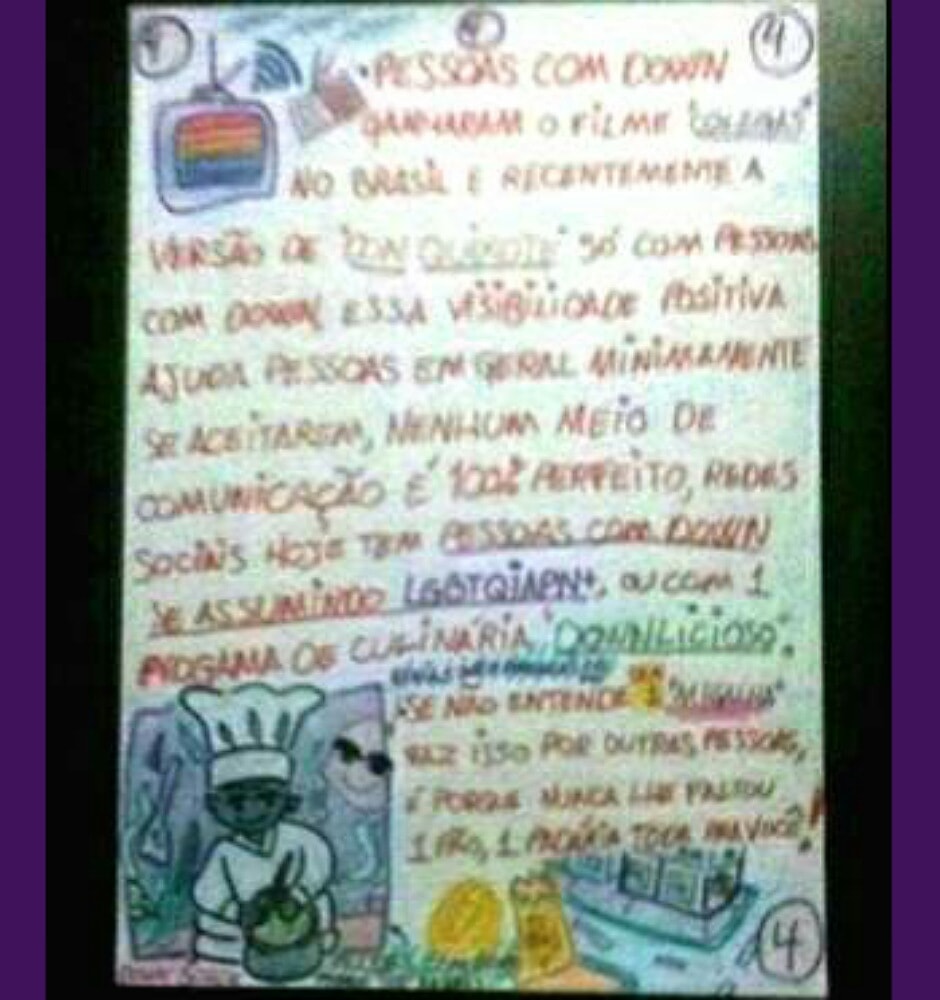 4
4
PESSOAS COM DOWN
GANHARAM O FILME "COLEGAS"
NO BRASIL E RECENTEMENTE A
VERSÃO DE "DON QUIXOTE" SÓ COM PESSOAS
COM DOWN ESSA VISIBILIDADE POSITIVA
AJUDA PESSOAS EM GERAL MINIMAMENTE
SE ACEITAREM, NENHUM MEIO DE
COMUNICAÇÃO É 100% PERFEITO, REDES
SOCIAIS HOJE TEM PESSOAS COM DOWN
SE ASSUMINDO LGBTQIAPN+, OU COM 1
PROGAMA DE CULINÁRIA, "DOWNLICIOSO".
SE NÃO ENTENDE 1 "MIGALHA"
FAZ ISSO POR OUTRAS PESSOAS,
É PORQUE NUNCA LHE FALTOU
1 PÃO, 1 PADARIA TODA PRA VOCÊ!
4